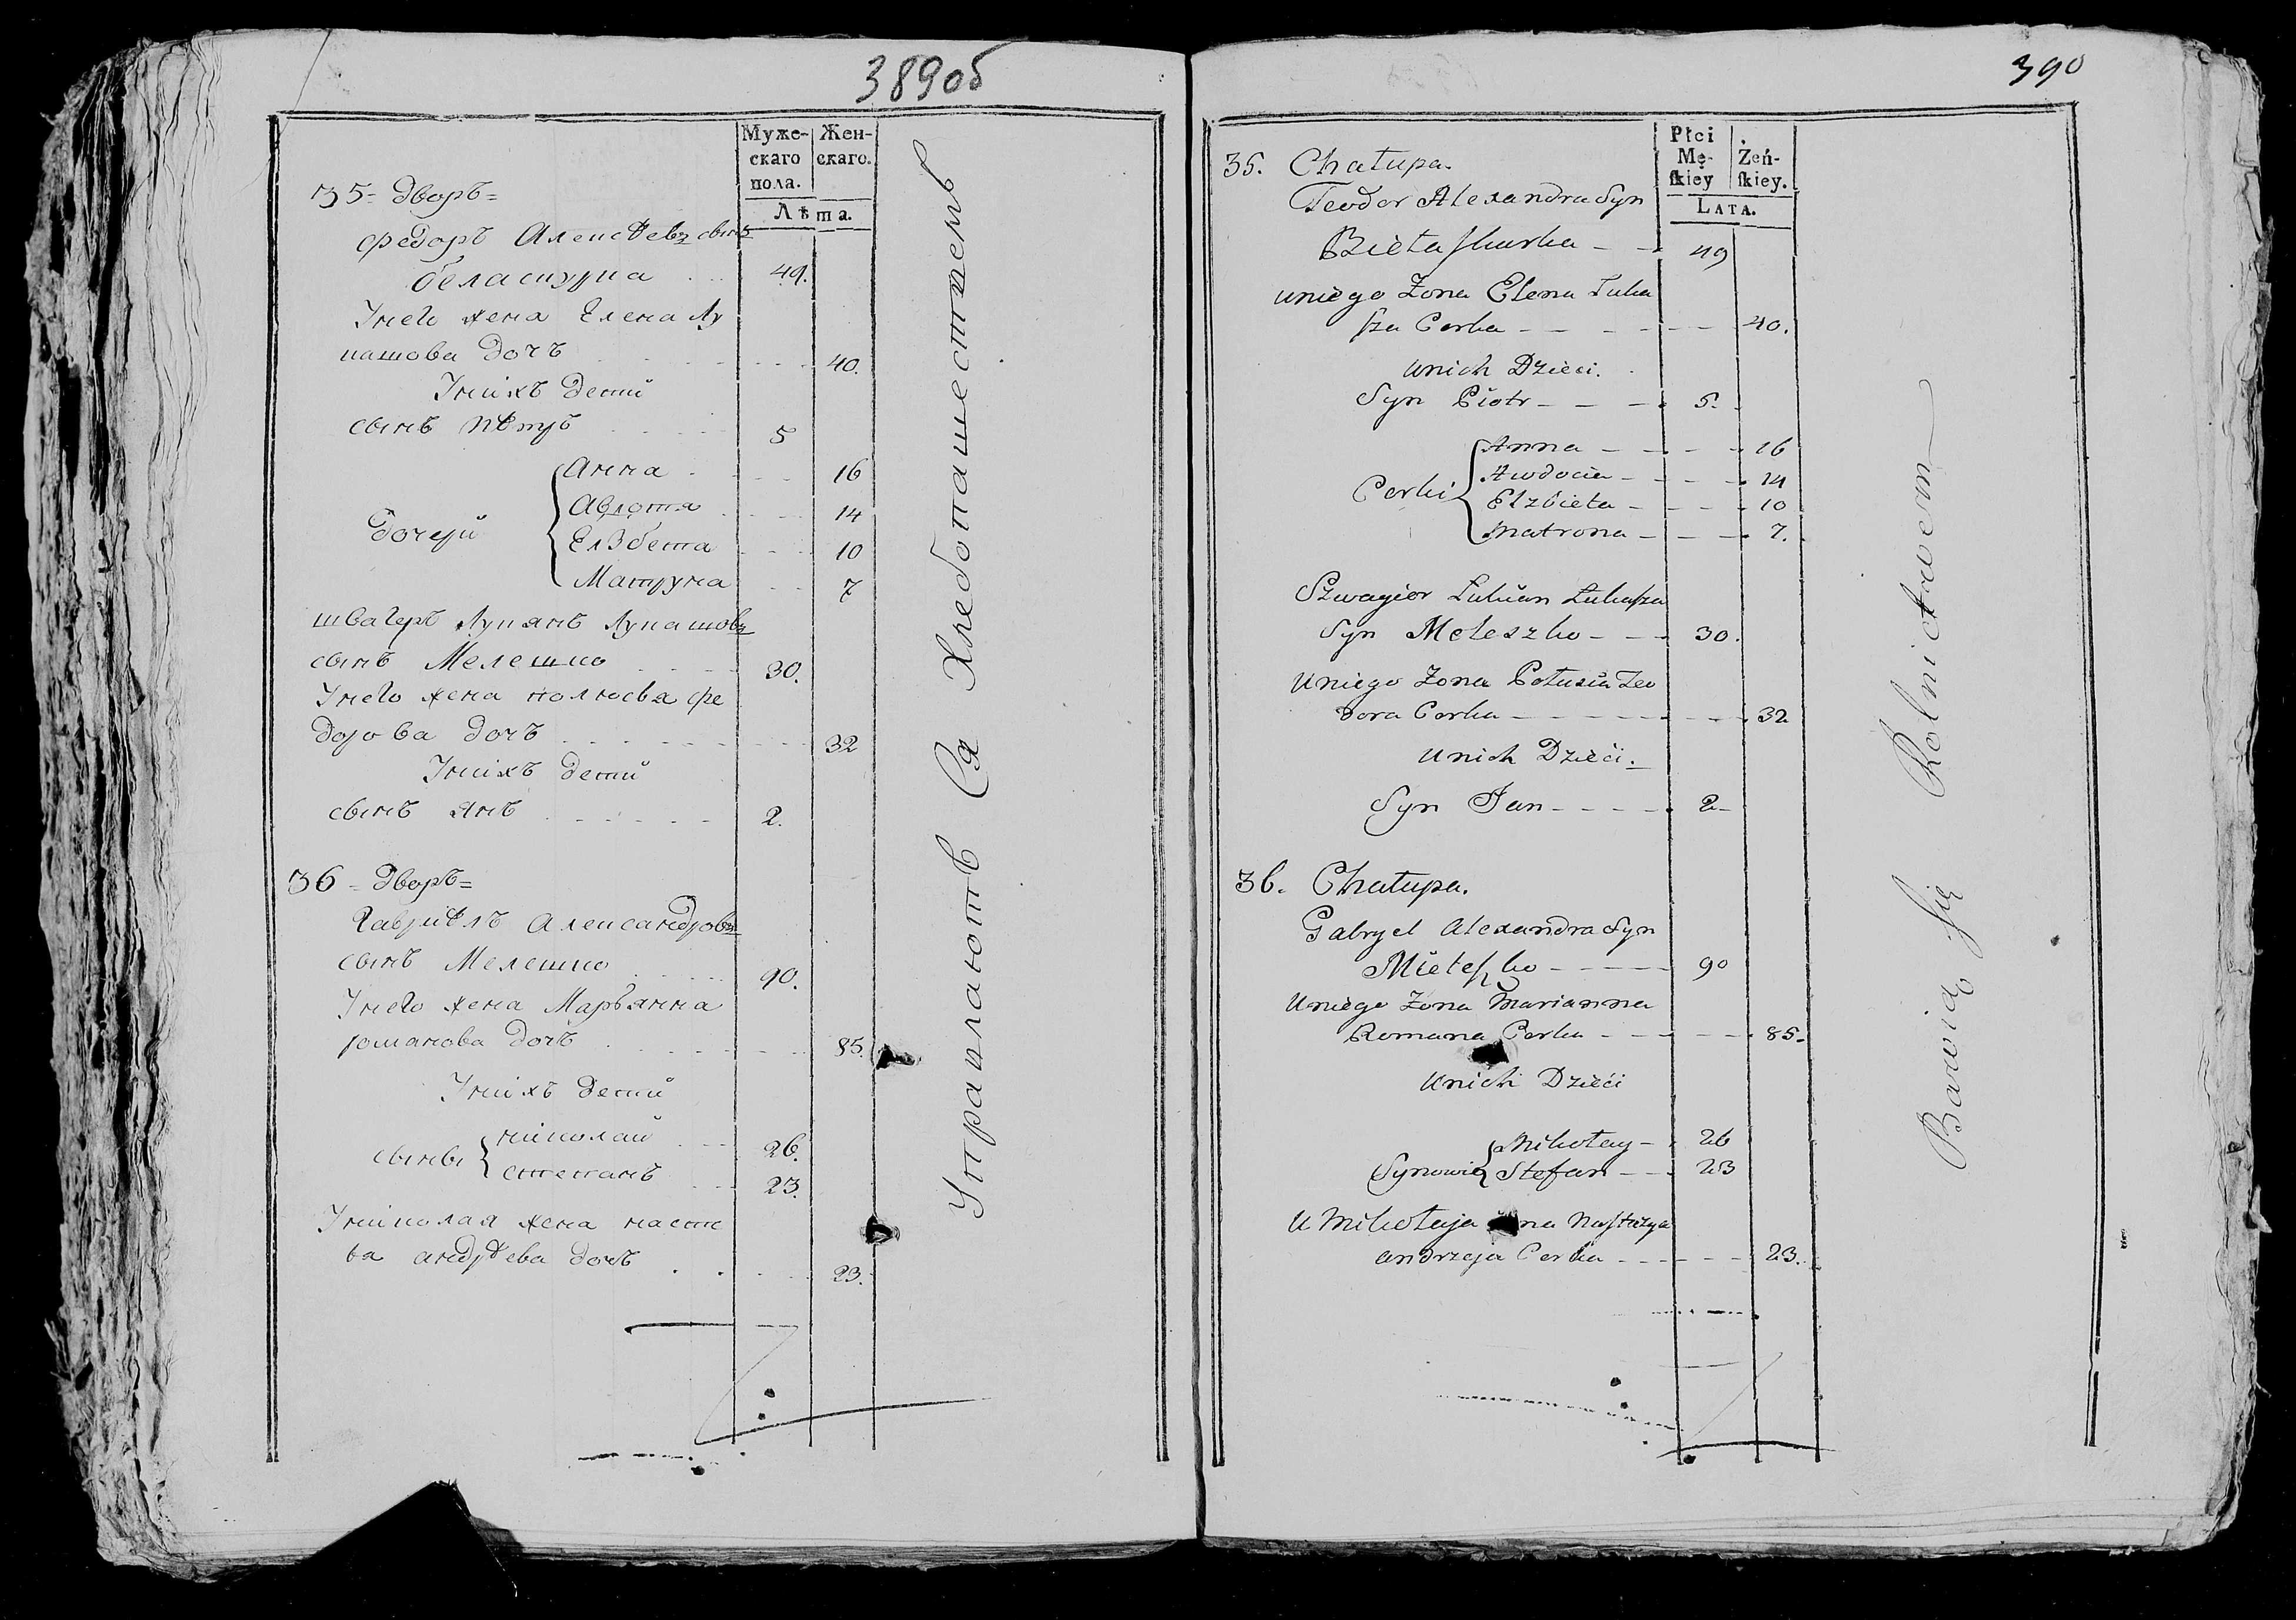 389об
Муже-
скаго
пола.
Жен-
скаго.
Лѣта.
35 - дворъ =
Федоръ Алексѣевъ сынъ
беласкурка . . . 49.
Унего жена Елена Лу
кашова дочь . . . 40.
Унихъ детей
сынъ пѣтръ . . . 5
дочери
Анна . . . 16
Авдотя . . . 14
Елзбета . . . 10
Матруна . . . 7
швагеръ Лукянъ Лукашовъ
сынъ Мелешко . . . 30.
Унего жена полюсья фе
дорова дочь . . . 32
Унихъ детей
сынъ янъ . . . 2.
36 - дворъ =
Гавриѣлъ Александровъ
сынъ Мелешко . . . 90.
Унего жена Маръянна
романова дочь . . . 85.
Унихъ детей
сынвя
николай . . . 26.
степанъ . . . 23.
Униколая жена насте
ва андрѣева дочь . . . 23.
Управляютъ Ся Хлебопашествемъ
390
Płci
Mę-
ſkiey
Żeń-
ſkiey.
LATA.
35. Chałupa.
Teodor Alexandra Syn
Biełaſkurka - - 49
uniego Żona Elena Łuka
ſza Corka - - - - 40.
unich Dzieci.
Syn Piotr - - - 5.
Corki
Anna - - - - 16
Awdocia - - - - 14
Elzbieta - - - - 10
Matrona - - - - 7.
Szwagier Łukian Łukaſza
Syn Meleszko - - - 30.
Uniego Żona Połusia Teo
dora Corka - - - - 32
Unich Dzieci.
Syn Jan - - - - 2 -
36. Chałupa.
Gabryel Alexandra Syn
Mieleſzko - - - - 90
Uniego Żona Marianna
Romana Corka - - - - 85.
Unich Dzieci
Synowie
Mikołay - 26
Stefan - - - 23
U Mikołaja na Naſtazya
Andrzeja Corka - - - - 23.
Bawią ſię Rolnictwem